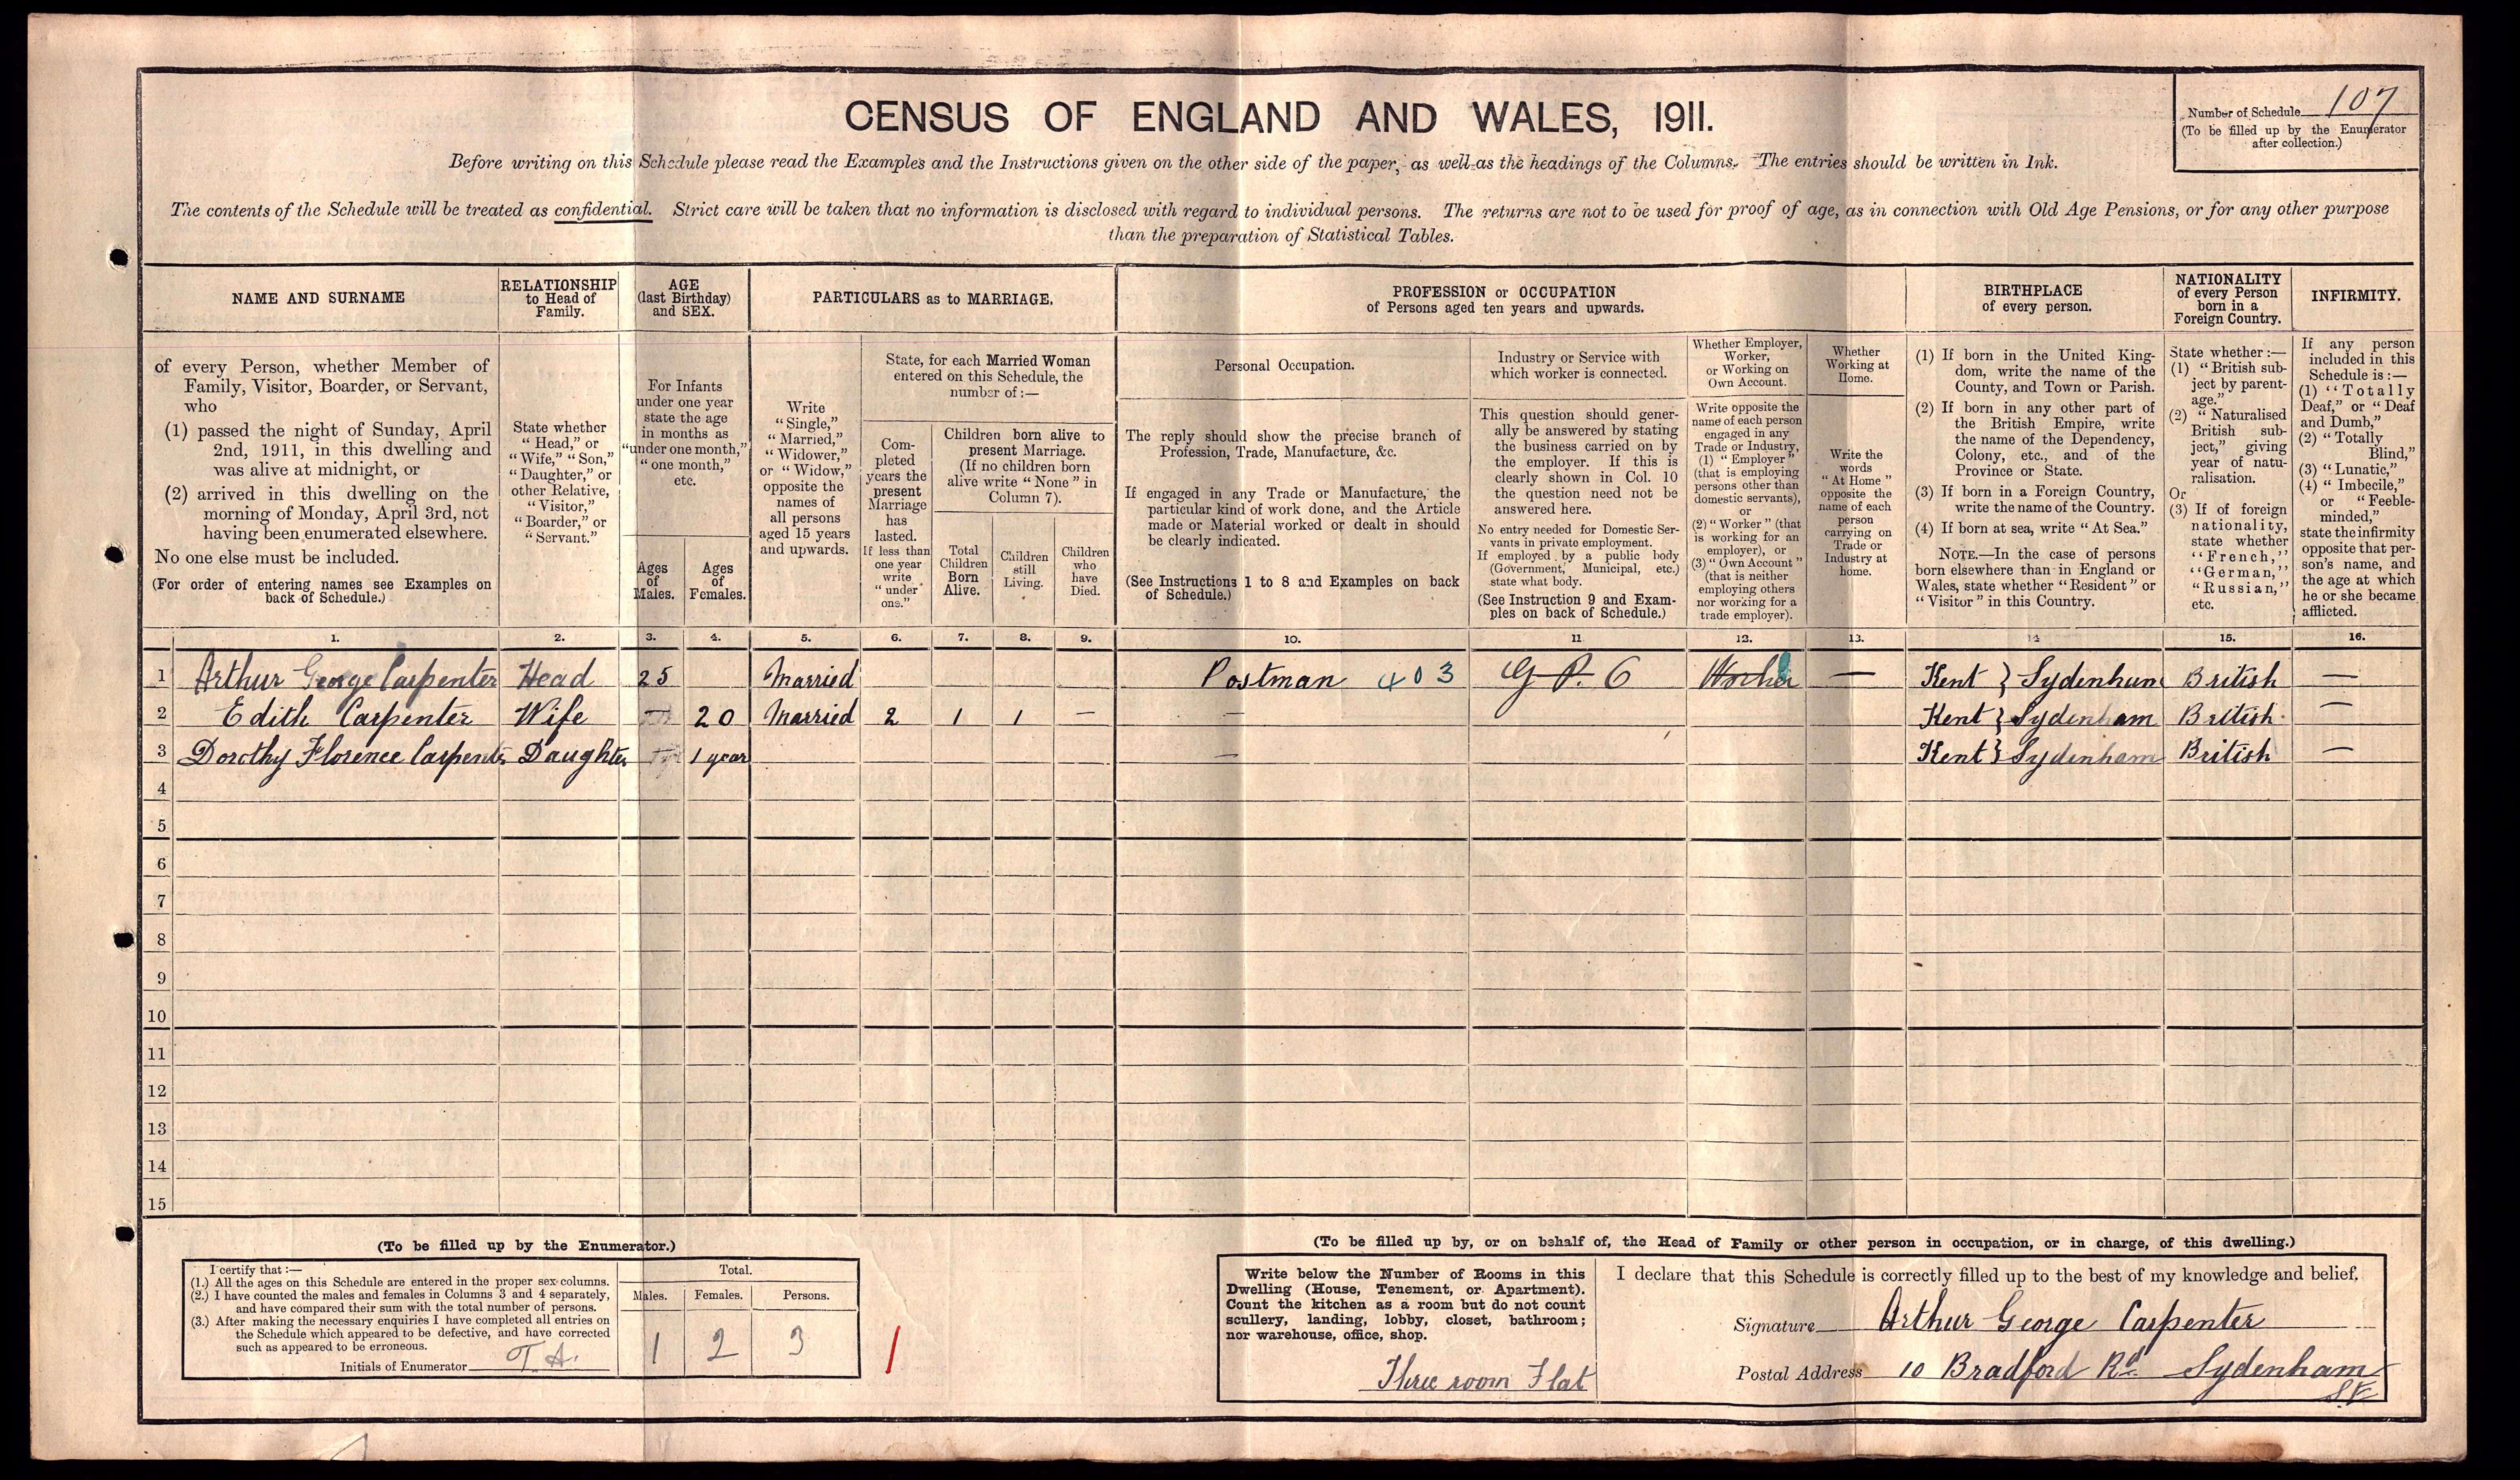 CENSUS OF ENGLAND AND WALES, 1911.
Number of Schedule 107
(To be filled up by the Enumerator
after collection.)
Before writing on this Schedule please read the Examples and the Instructions given on the other side of the paper, as well as the headings of the Columns. The entries should be written in Ink.
The contents of the Schedule will be treated as confidential. Strict care will be taken that no information is disclosed with regard to individual persons. The returns are not to be used for proof of age, as in connection with Old Age Pensions, or for any other purpose
than the preparation of Statistical Tables.
NAME AND SURNAME
RELATIONSHIP
to Head of
Family.
AGE
(last Birthday)
and SEX.
PARTICULARS as to MARRIAGE.
PROFESSION or OCCUPATION
of Persons aged ten years and upwards.
BIRTHPLACE
of every person.
NATIONALITY
of every Person
born in a
Foreign Country.
INFIRMITY.
of every Person, whether Member of
Family, Visitor, Boarder, or Servant,
who
(1) passed the night of Sunday, April
2nd, 1911, in this dwelling and
was alive at midnight, or
(2) arrived in this dwelling on the
morning of Monday, April 3rd, not
having been enumerated elsewhere.
No one else must be included.
(For order of entering names see Examples on
back of Schedule.)
State whether
"Head," or
"Wife," "Son,"
"Daughter," or
other Relative,
"Visitor,"
"Boarder," or
"Servant."
For Infants
under one year
state the age
in months as
"under one month,"
"one month,"
etc.
Ages
of
Males.
Ages
of
Females.
Write
"Single,"
"Married,"
"Widower,"
or "Widow,"
opposite the
names of
all persons
aged 15 years
and upwards.
State, for each Married Woman
entered on this Schedule, the
number of:—
Com-
pleted
years the
present
Marriage
has
lasted.
If less than
one year
write
"under
one."
Children born alive to
present Marriage.
(If no children born
alive write "None" in
Column 7).
Total
Children
Born
Alive.
Children
still
Living.
Children
who
have
Died.
Personal Occupation.
The reply should show the precise branch of
Profession, Trade, Manufacture, &c.
If engaged in any Trade or Manufacture, the
particular kind of work done, and the Article
made or Material worked or dealt in should
be clearly indicated.
(See Instructions 1 to 8 and Examples on back
of Schedule.)
Industry or Service with
which worker is connected.
This question should gener-
ally be answered by stating
the business carried on by
the employer. If this is
clearly shown in Col. 10
the question need not be
answered here.
No entry needed for Domestic Ser-
vants in private employment.
If employed by a public body
(Government, Municipal, etc.)
state what body.
(See Instruction 9 and Exam-
ples on back of Schedule.)
Whether Employer,
Worker,
or Working on
Own Account.
Write opposite the
name of each person
engaged in any
Trade or Industry,
(1) "Employer"
(that is employing
persons other than
domestic servants),
or
(2) "Worker" (that
is working for an
employer), or
(3) "Own Account"
(that is neither
employing others
nor working for a
trade employer).
Whether
Working at
Home.
Write the
words
"At Home"
opposite the
name of each
person
carrying on
Trade or
Industry at
home.
(1) If born in the United King-
dom, write the name of the
County, and Town or Parish.
(2) If born in any other part of
the British Empire, write
the name of the Dependency,
Colony, etc., and of the
Province or State.
(3) If born in a Foreign Country,
write the name of the Country.
(4) If born at sea, write "At Sea."
NOTE.—In the case of persons
born elsewhere than in England or
Wales, state whether "Resident" or
"Visitor" in this Country.
State whether:—
(1) "British sub-
ject by parent-
age."
(2) "Naturalised
British sub-
ject," giving
year of natu-
ralisation.
Or
(3) If of foreign
nationality,
state whether
"French,"
"German,"
"Russian,"
etc.
If any person
included in this
Schedule is:—
(1) "Totally
Deaf," or "Deaf
and Dumb,"
(2) "Totally
Blind,"
(3) "Lunatic,"
(4) "Imbecile,"
or "Feeble-
minded,"
state the infirmity
opposite that per-
son's name, and
the age at which
he or she became
afflicted.
1. 2. 3. 4. 5. 6. 7. 8. 9. 10. 11 12. 13. 14 15. 16.
1 Arthur George Carpenter Head 25 Married Postman 403 G.P.O Worker — Kent } Sydenham British —
2 Edith Carpenter Wife 20 Married 2 1 1 — — Kent } Sydenham British —
3 Dorothy Florence Carpenter Daughter 1 year — Kent } Sydenham British —
4
5
6
7
8
9
10
11
12
13
14
15
(To be filled up by the Enumerator.)
I certify that:—
(1.) All the ages on this Schedule are entered in the proper sex columns.
(2.) I have counted the males and females in Columns 3 and 4 separately,
and have compared their sum with the total number of persons.
(3.) After making the necessary enquiries I have completed all entries on
the Schedule which appeared to be defective, and have corrected
such as appeared to be erroneous.
Initials of Enumerator T.A.
Total.
Males. Females. Persons.
1 2 3
1
(To be filled up by, or on behalf of, the Head of Family or other person in occupation, or in charge, of this dwelling.)
Write below the Number of Rooms in this
Dwelling (House, Tenement, or Apartment).
Count the kitchen as a room but do not count
scullery, landing, lobby, closet, bathroom;
nor warehouse, office, shop.
Three room Flat
I declare that this Schedule is correctly filled up to the best of my knowledge and belief.
Signature Arthur George Carpenter
Postal Address 10 Bradford Rd. Sydenham
S.E.